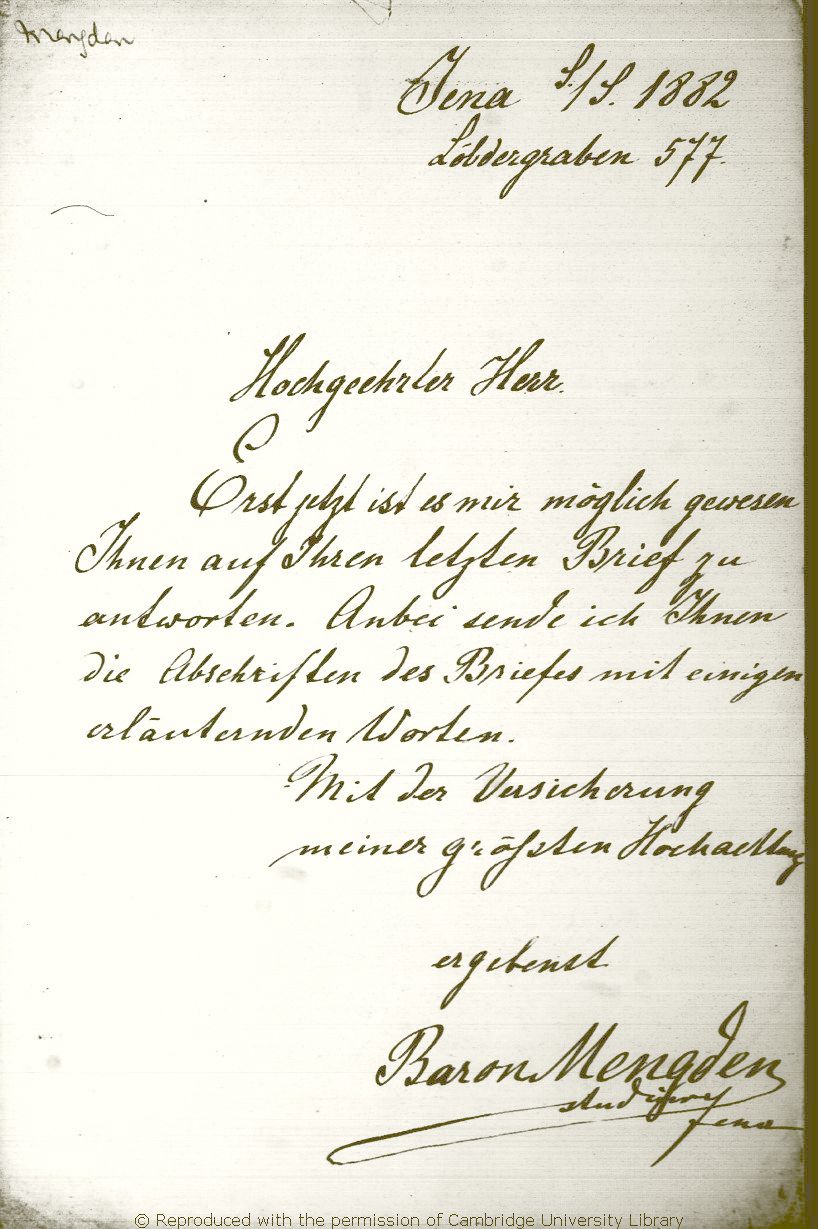 Mengden
Jena 5./5. 1882
Löbdergraben 577.
Hochgeehrter Herr.
Erst jetzt ist es mir möglich gewesen
Ihnen auf Ihren letzten Brief zu
antworten. Anbei sende ich Ihnen
die Abschriften des Briefes mit einigen
erläuternden Worten.
Mit der Versicherung
meiner größten Hochachtung
ergebenst
Baron Mengden
Jena
© Reproduced with the permission of Cambridge University Library